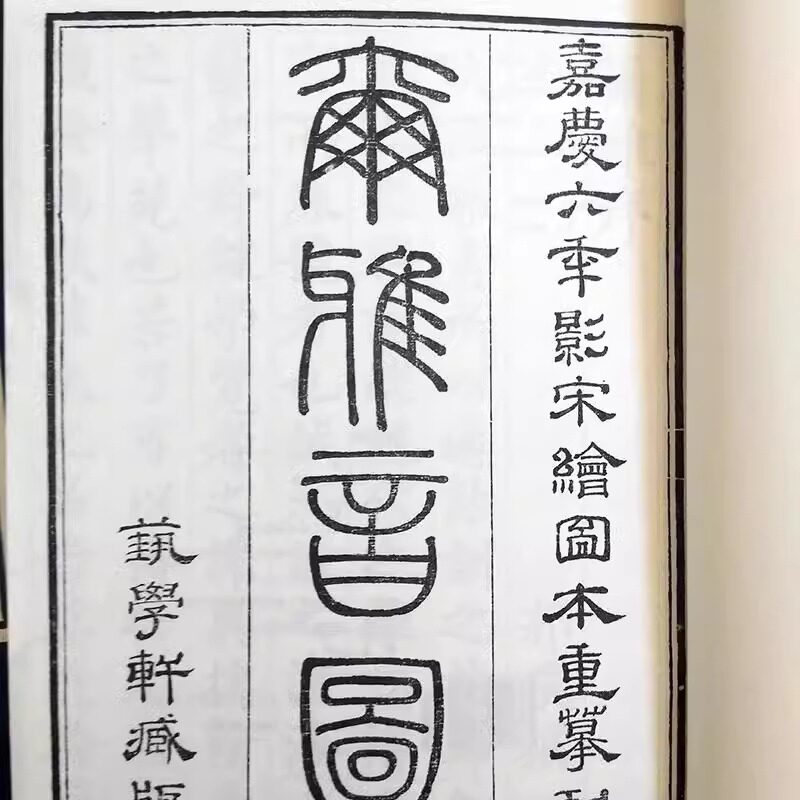 嘉慶六秊影宋繪圖本重摹
爾雅音圖
蓺學軒臧版